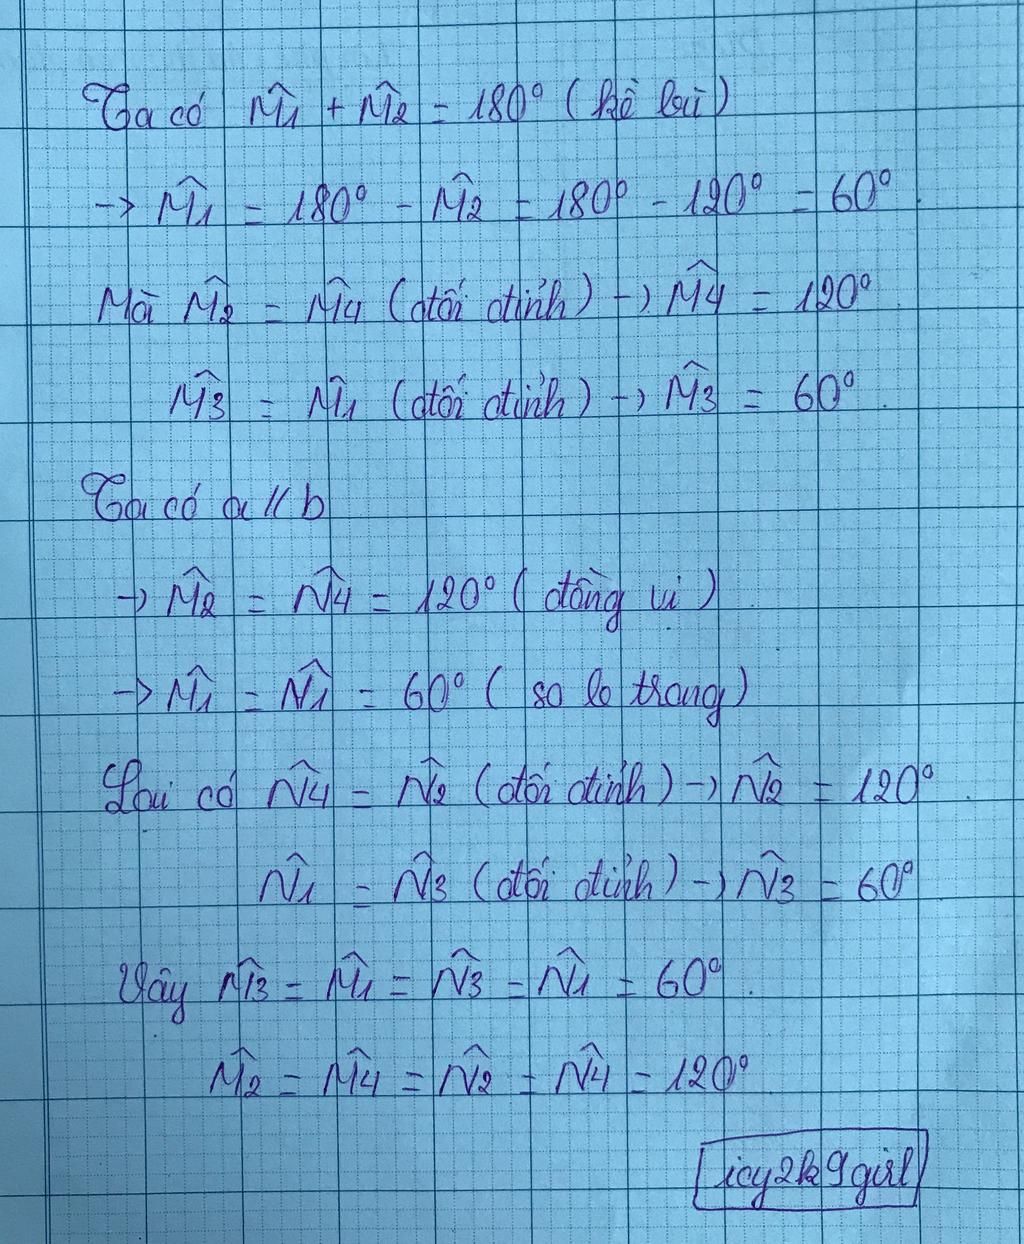 Ta có M̂1 + M̂2 = 180° (kề bù)
→ M̂1 = 180° - M̂2 = 180° - 120° = 60°.
Mà M̂2 = M̂4 (đối đỉnh) → M̂4 = 120°.
M̂3 = M̂1 (đối đỉnh) → M̂3 = 60°.
Ta có a // b
→ M̂2 = N̂4 = 120° (đồng vị)
→ M̂1 = N̂1 = 60° (so le trong)
Lại có N̂4 = N̂2 (đối đỉnh) → N̂2 = 120°.
N̂1 = N̂3 (đối đỉnh) → N̂3 = 60°
Vậy M̂3 = M̂1 = N̂3 = N̂1 = 60°.
M̂2 = M̂4 = N̂2 = N̂4 = 120°
icy2k9girl